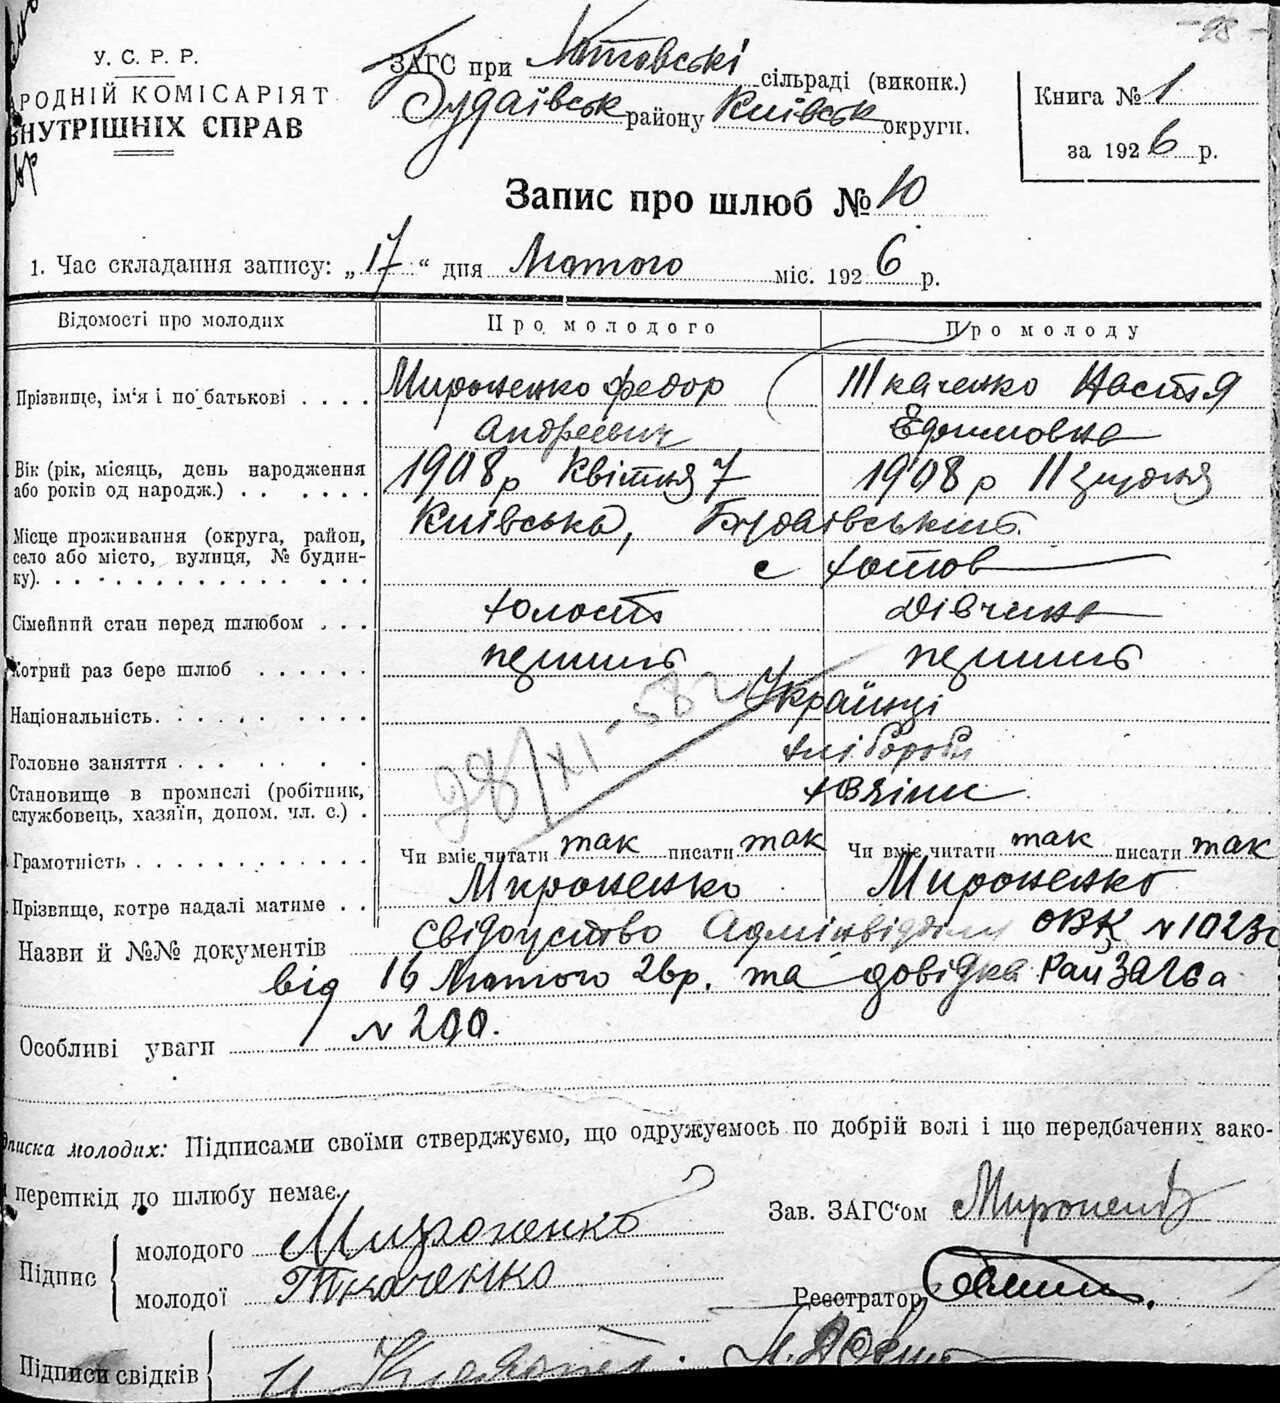 - 98 -
У. С. Р. Р.
АРОДНІЙ КОМІСАРІЯТ
ВНУТРІШНІХ СПРАВ
ЗАГС при Хотовські сільраді (виконк.)
Будаївськ району Київськ округи.
Книга № 1
за 1926 р.
Запис про шлюб № 10
1. Час складання запису: „17“ дня Лютого міс. 1926 р.
Відомості про молодих Про молодого Про молоду
Прізвище, ім'я і по батькові . . . . Мироненко Федор Ткаченко Настя
Андреевич Ефимовна
Вік (рік, місяць, день народження 1908 р Квітня 7 1908 р 11 грудня
або років од народж.) . . . . . .
Місце проживання (округа, район, Київська, Будаівський.
село або місто, вулиця, № будин- с Хотов
ку). . . . . . . . . . . . . . . .
Сімейний стан перед шлюбом . . . Холост Дівчина
Котрий раз бере шлюб . . . . . . перший перший
Національність. . . . . . . . . . Українці
28/XI-58г
Головне заняття . . . . . . . Хлібороби
Становище в промислі (робітник, Хазяіни
службовець, хазяїн, допом. чл. с.) .
Грамотність . . . . . . . . . . . . Чи вміє читати так писати так Чи вміє читати так писати так
Прізвище, котре надалі матиме . . Мироненко Мироненко
Назви й №№ документів свідоцтво Адмінвідділу ОВК №1023
від 16 Лютого 26р. та довідка РайЗАГСа
№ 200.
Особливі уваги
писка молодих: Підписами своїми стверджуємо, що одружуємось по добрій волі і що передбачених зако-
перешкід до шлюбу немає.
Підпис молодого Мироненко Зав. ЗАГС'ом Мироненко
молодої Ткаченко Реєстратор
Підписи свідків